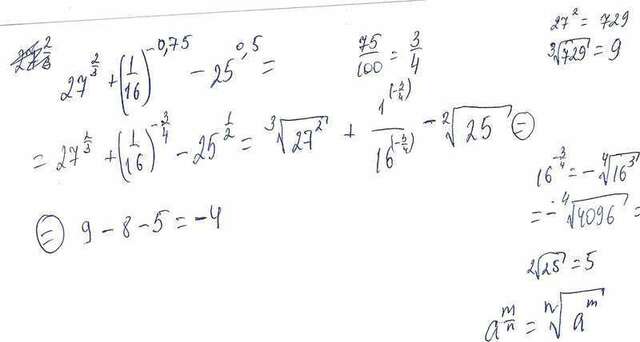 27^(2/3) + (1/16)^(-0,75) - 25^(0,5) =
75/100 = 3/4
27² = 729
³√729 = 9
= 27^(2/3) + (1/16)^(-3/4) - 25^(1/2) = ³√27² + 1^(-3/4)/16^(-3/4) - ²√25 =
16^(-3/4) = -⁴√16³
= -⁴√4096 =
= 9 - 8 - 5 = -4
²√25 = 5
a^(m/n) = ⁿ√a^m